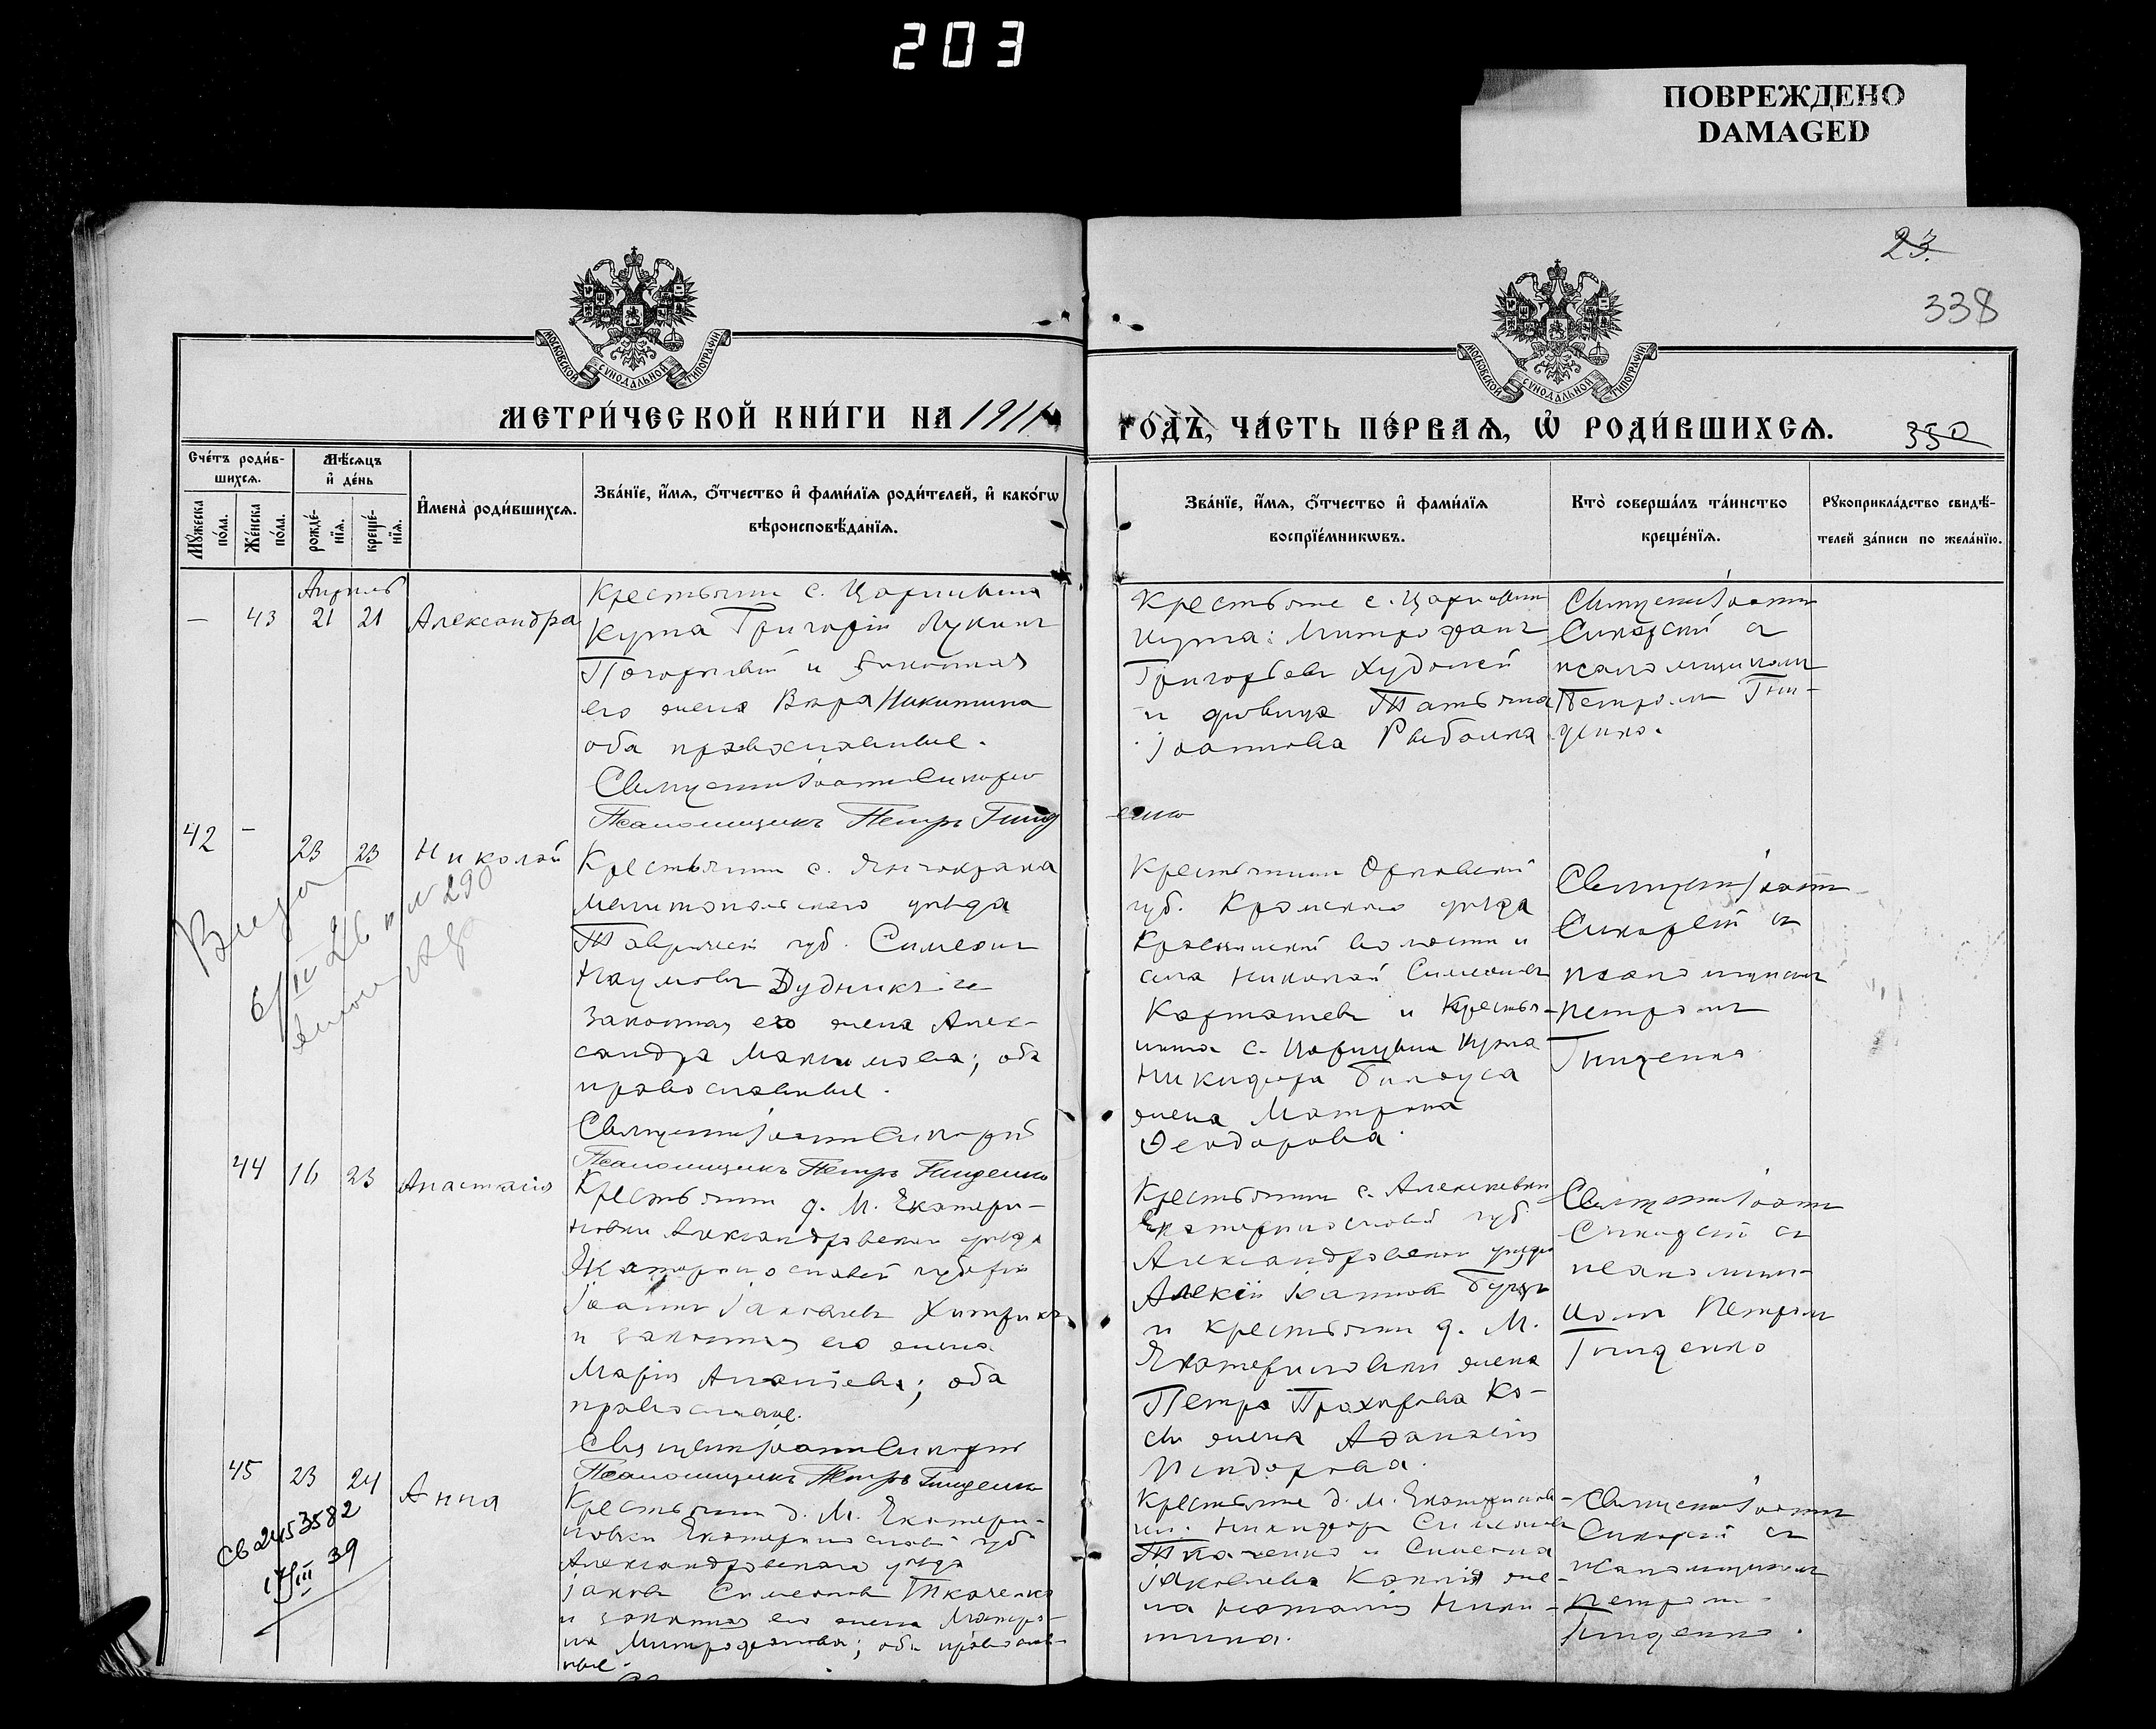 203
ПОВРЕЖДЕНО
DAMAGED
23.
338
МОСКОВСКОЙ СѴНОДАЛЬНОЙ ТИПОГРАФІИ
МОСКОВСКОЙ СѴНОДАЛЬНОЙ ТИПОГРАФІИ
МЕТРИ́ЧЕСКОЙ КНИ́ГИ НА 1911
ГО́ДЪ, ЧА́СТЬ ПЕ́РВАѦ, Ѽ РОДИ́ВШИХСѦ.
350
Сче́тъ роди́в-
шихсѧ.
Мѣ́сѧцъ
и҆ де́нь
Мꙋ́жеска
по́ла.
Же́нска
по́ла.
рожде́-
нїѧ.
креще́-
нїѧ.
И҆мена̀ роди́вшихсѧ.
Зва́нїе, и҆́мѧ, ѻ҆́тчество и҆ фами́лїѧ роди́телей, и҆ како́гѡ
вѣроисповѣ́данїѧ.
Зва́нїе, и҆́мѧ, ѻ҆́тчество и҆ фами́лїѧ
воспрїе́мникѡвъ.
Кто̀ соверша́лъ та́инство
креще́нїѧ.
Рꙋкоприкла́дство свидѣ́-
телей за́писи по жела́нїю.
Апрель
— 43 21 21 Александра
Крестьянин с. Царицына
Кута Григорій Лукинъ
и законная
его жена Вѣра Никитина
оба православные.
Священ. Іоанн Сикорскій
Псаломщикъ Петръ Гнид
енко
Крестьяне с. Царицына
Кута: Митрофанъ
Григорьевъ Худолей
и девица Татьяна
Іоаннова Рыбалка
Священ. Іоанн
Сикорскій съ
псаломщикомъ
Петромъ Гни-
денко.
42 — 23 23 Николай
Крестьянин с.
Мелитопольскаго уѣзда
Таврическ. губ. Симеонъ
Наумовъ Дудникъ и
законная его жена Алек-
сандра Максимова; оба
православные.
Священ. Іоанн Сикорскій
Псаломщикъ Петръ Гниденко
Крестьянин Орловской
губ. Кромскаго уѣзда
волости и
села Николай Симеоновъ
Карташевъ и Крестья-
нина с. Царицына Кута
Никифора Билоуса
жена Матрона
Ѳеодорова.
Священ. Іоанн
Сикорскій съ
псаломщикомъ
Петромъ
Гниденко
6/IV 26 №290
44 16 23 Анастасія
Крестьянин д. М. Екатери-
новки Александровскаго уѣзда
Екатеринославской губерніи
Іоаннъ Іаковлевъ
и законная его жена
Марія Ананіева; оба
православные.
Священ. Іоанн Сикорскій
Псаломщикъ Петръ Гниденко
Крестьянин с. Алексеевки
Екатеринославской губ.
Александровскаго уѣзда
Алексій Іоаннов
и крестьянин д. М.
Екатериновки жена
Петра Прохорова Ко-
жена
Ѳеодорова.
Священ. Іоанн
Сикорскій съ
псаломщи-
комъ Петромъ
Гниденко
45 23 24 Анна
Крестьянин д. М. Екатери-
новки Екатеринославской губ.
Александровскаго уѣзда
Іаковъ Симеоновъ Ткаченко
и законная его жена Матро-
на Митрофанова; оба православ-
ные.
Крестьяне д. М. Екатеринов-
ки: Никифоръ Симеоновъ
Ткаченко и Симеона
Яковлева жe-
на Наталія Ники-
тина.
Священ. Іоанн
Сикорскій съ
псаломщикомъ
Петромъ
Гниденко.
СВ 2453582
17/III 39